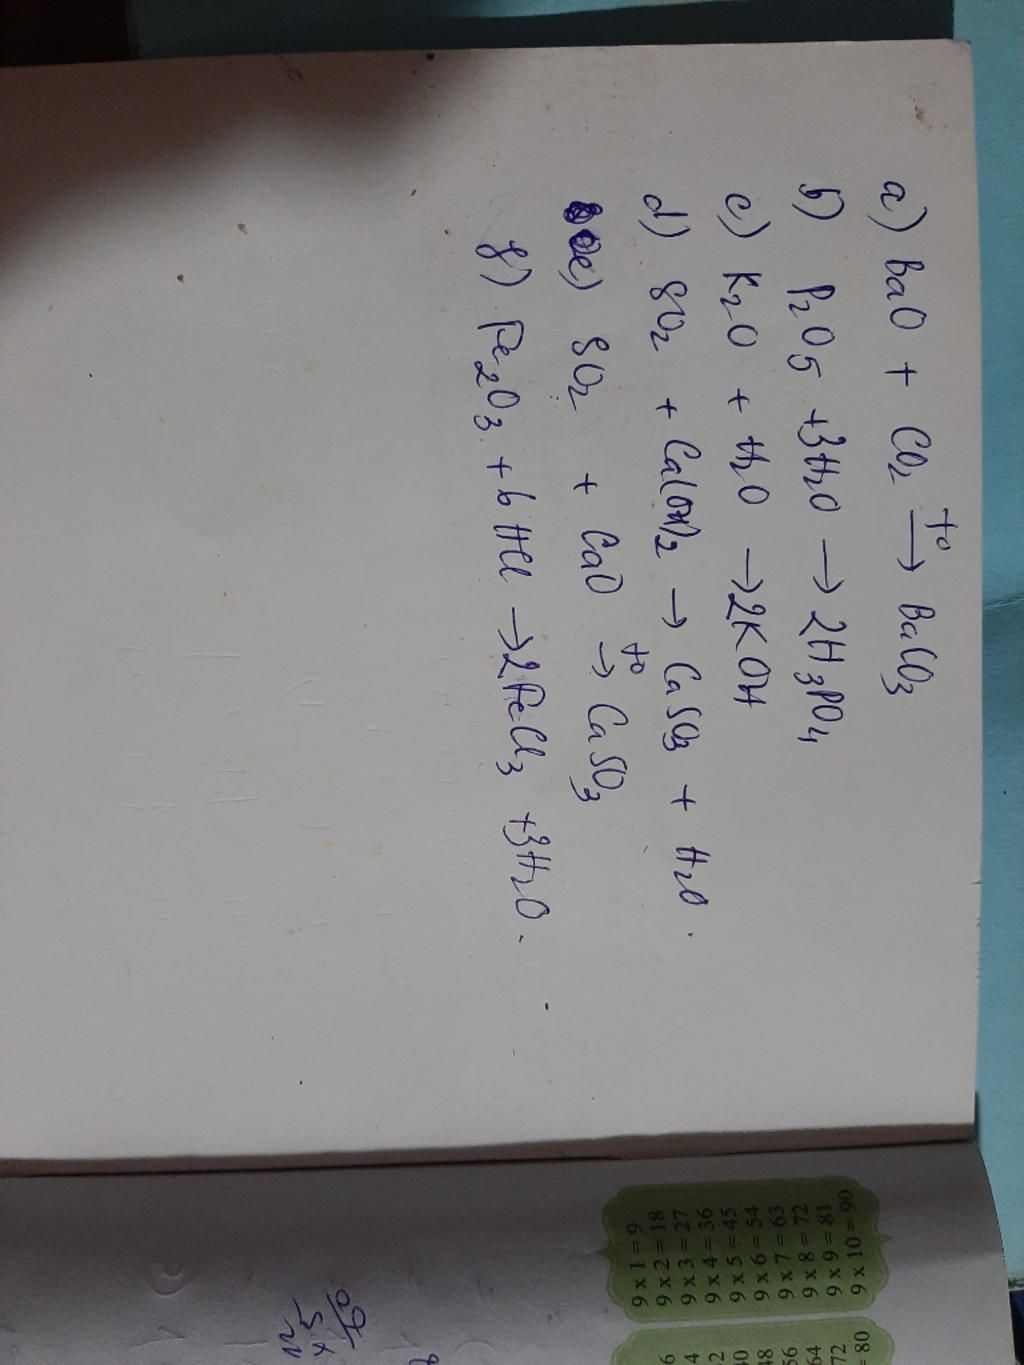 a) BaO + CO2 to→ BaCO3
b) P2O5 +3H2O → 2H3PO4
c) K2O + H2O → 2KOH
d) SO2 + Ca(OH)2 → CaSO3 + H2O.
e) SO2 + CaO to→ CaSO3
g) Fe2O3 + 6HCl → 2FeCl3 +3H2O.
9 x 1 = 9
9 x 2 = 18
9 x 3 = 27
9 x 4 = 36
9 x 5 = 45
9 x 6 = 54
9 x 7 = 63
9 x 8 = 72
9 x 9 = 81
9 x 10 = 90
12
x 5
60
64
72
= 80